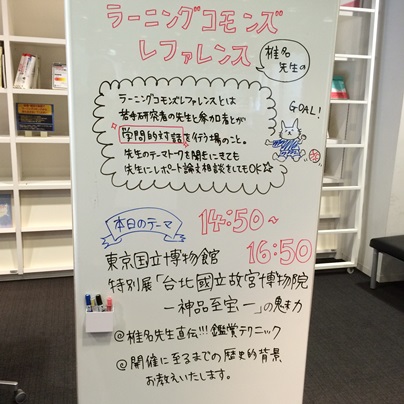 ラーニングコモンズ
レファレンス
椎名
先生の
GOAL!
ラーニングコモンズレファレンスとは
若手研究者の先生と参加者とが
学問的対話を行う場のこと。
先生のテーマトークを聞きにきても
先生にレポート論文相談をしてもOK☆
本日のテーマ
14:50〜
16:50
東京国立博物館
特別展「台北國立故宮博物院
ー神品至宝ー」の魅力
@椎名先生直伝!!!鑑賞テクニック
@開催に至るまでの歴史的背景
お教えいたします。